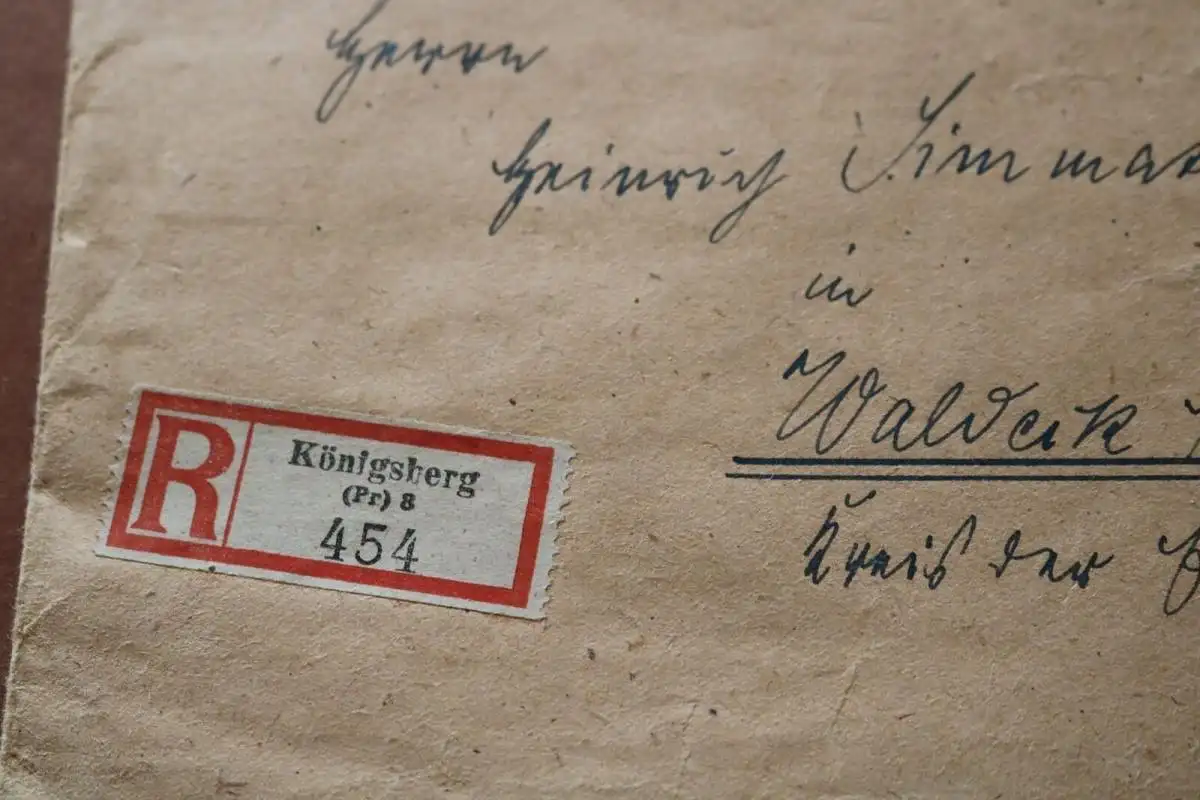 Herrn
Heinrich Simmat
in
Waldeck
Kreis der E
R
Königsberg
(Pr) 8
454